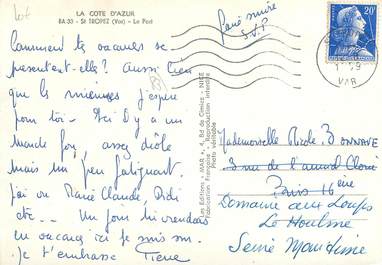 lot
LA COTE D'AZUR
8A.30 - St TROPEZ (Var) - Le Port
Comment tes vacances se
passent-elle? Aussi bien
que les miennes j'espère
pour toi - Ici il y a un
monde fou, assez drôle
mais un peu fatiguant.
J'ai vu Marie Claude, Didi
etc... Un jour
en vacances ici je suis
Je t'embrasse
Les Editions MAR, 4, Bd de Cimiez - NICE
Fabrication Française - Reproduction interdite
Photo véritable
Faire suivre
S.V.P
20F
VAR
Mademoiselle Nicole BONNAVE
3 rue de l'amiral
Paris 16ème
Domaine aux Loups
Le Houlme
Seine Maritime